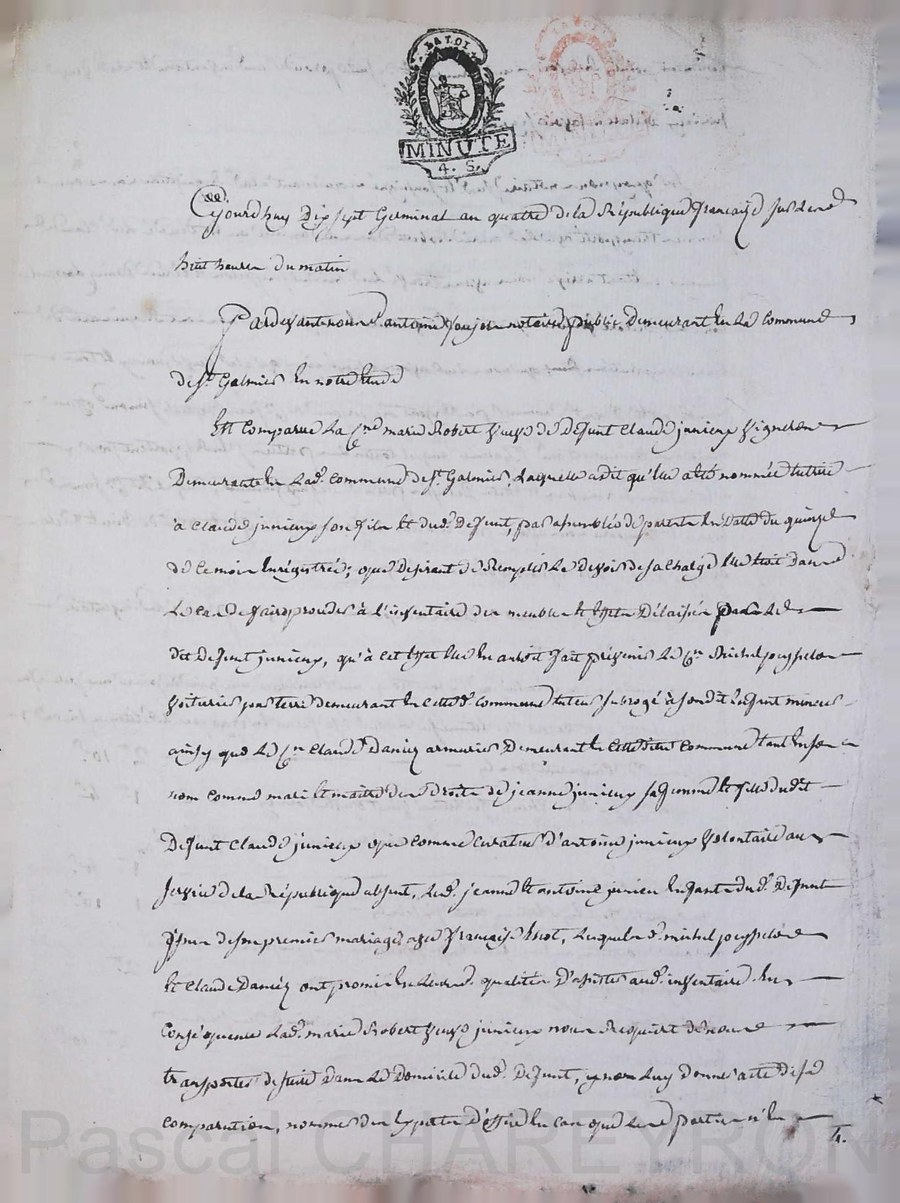 LA LOI
MINUTE
4. S.
Ce jourdhuy Dix sept Germinal an quatre de la République française sur les
huit heures du matin
Pardevant nous antoine notaire public Demeurant en La Commune
de St. Galmier En notre Etude
Est Comparue La Cne marie Robert veuve de Defunt Claude junieux vigneron
Demeurante En Lad. Commune de St. Galmier, Laquelle a dit qu'elle a été nommée tutrice
à Claude junieux son fils Et dud. Defunt, par assemblée de parents En datte du quinze
de Ce mois Enregistrée; que desirant de Remplir Le Devoir de sa Charge Elle étoit dans
Le Cas de faire proceder à L'inventaire des meubles Et Effets Délaissés par Le
dit Defunt junieux, qu'à Cet Effet Elle En avoit fait prévenir Le Cn. Michel jousselon
voiturier par terre demeurant En Cette d. Commune tuteur subrogé à son dit Enfant mineur
ainsy que Le Cn Claude Daniez armurier Demeurant En Cette ditte Commune tant En son
nom Comme mari Et maitre des droits de jeanne junieux sa femme Et fille du dit
Defunt Claude junieux que Comme Curateur d'antoine junieux Volontaire au
service de la République absent, Led. jeanne Et antoine junieu Enfants dud. Defunt
issus de son premier mariage avec françoise, Lesquels d. michel jousselon
Et Claude Daniez ont promis En Leurs d. qualités D'assister aud. inventaire. En
Conséquence Lad. marie Robert veuve junieux nous Requiert de nous
transporter de suite Dans Le Domicile dud. Defunt, & nous Luy donner acte de sa
Comparution, nommer des Experts d'office En Cas que Les parties n'En
4.
Pascal CHAREYRON